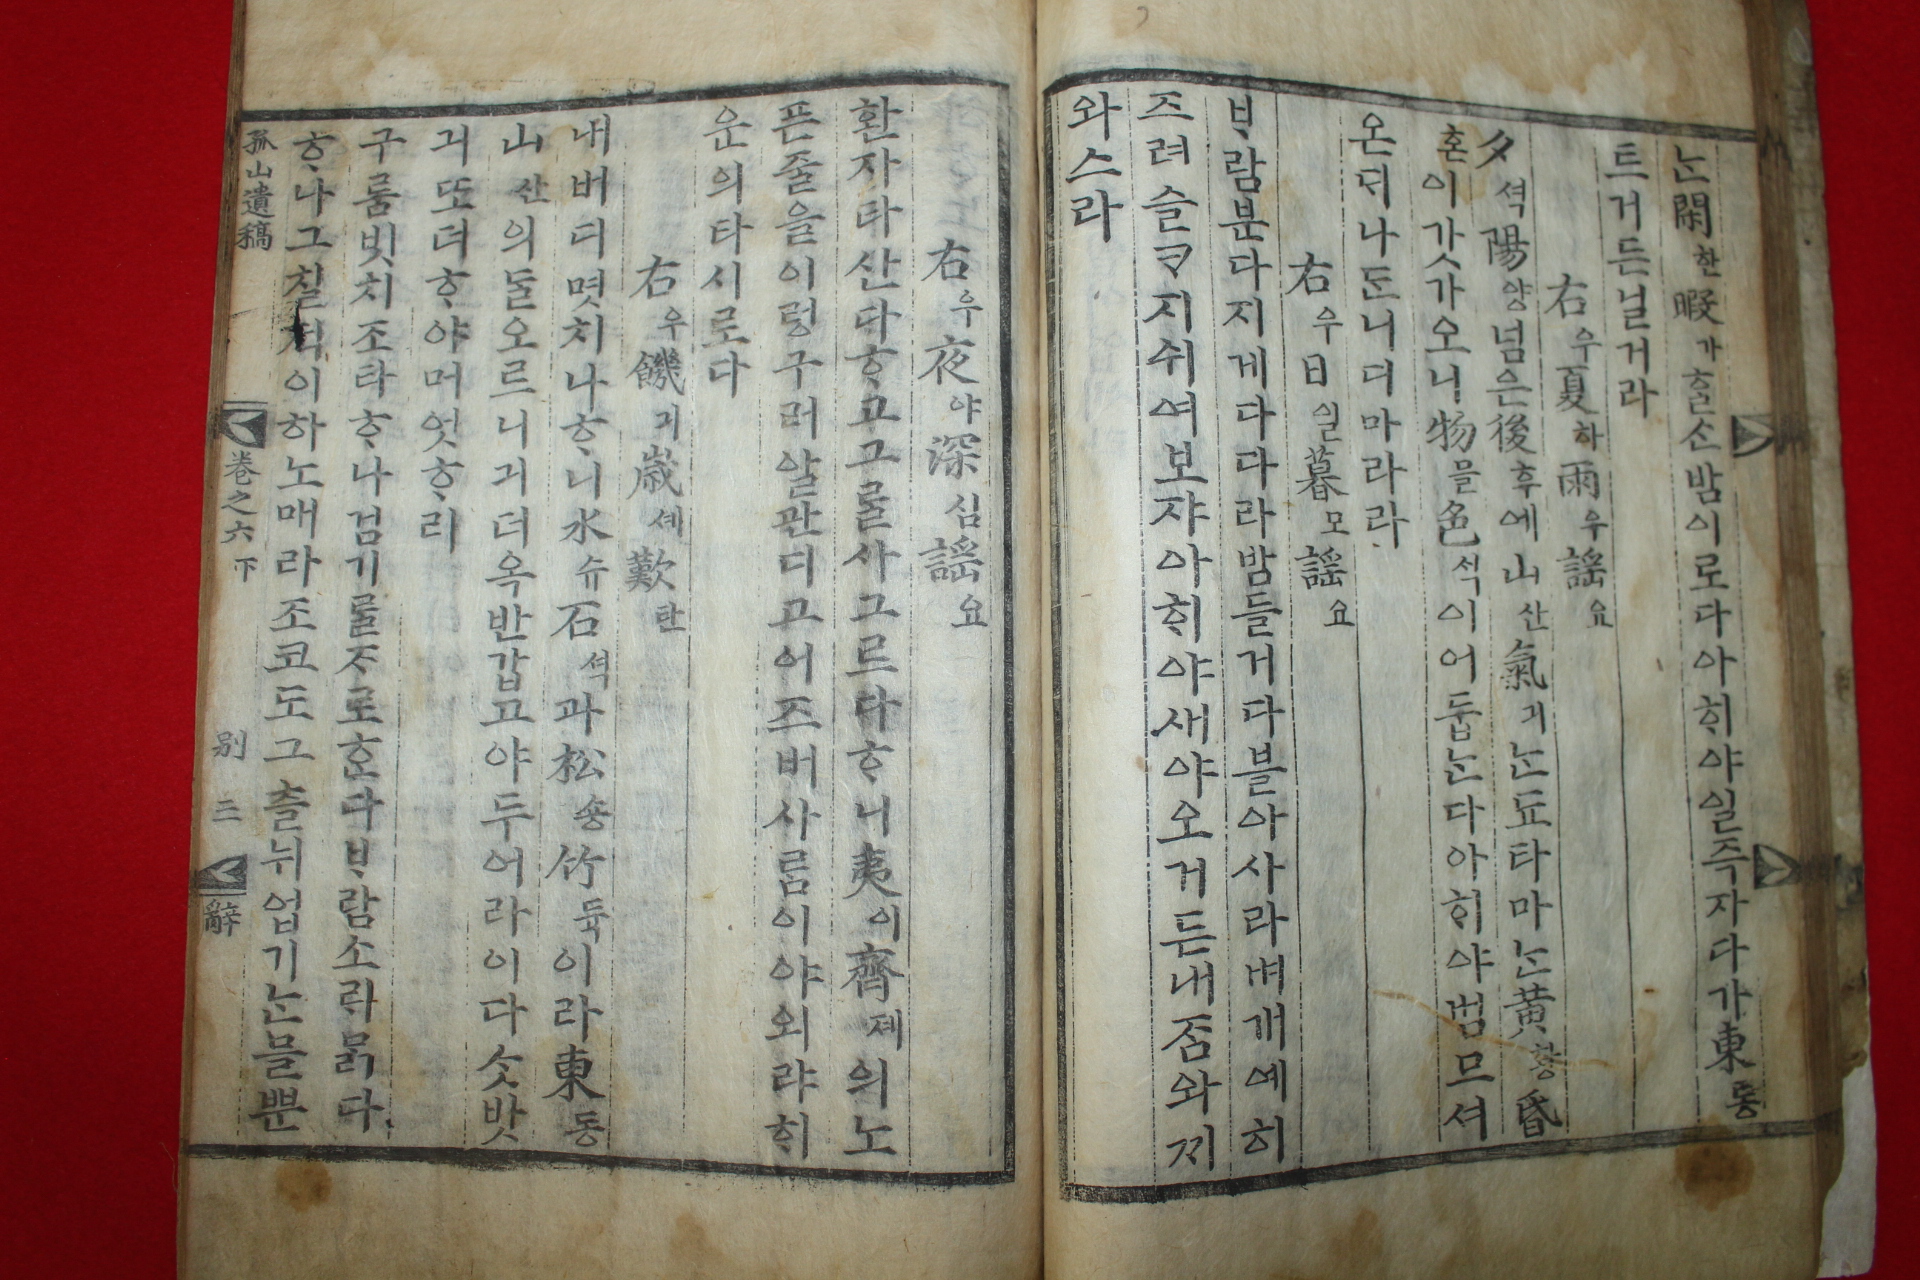 는閑한暇가ᄒᆞᆯ손밤이로다아ᄒᆡ야일즉자다가東동
트거든닐거라
右우夏하雨우謠요
夕셕陽양넘은後후에山산氣긔는됴타마는黃황昏
혼이갓가오니物믈色ᄉᆡᆨ이어둡는다아ᄒᆡ야범므셔
온ᄃᆡ나ᄃᆞ니디마라라
右우日일暮모謠요
ᄇᆞ람분다지게다다라밤들거다블아사라벼개예히
즈려슬ᄏᆞ지쉬여보쟈아ᄒᆡ야새야오거든내ᄌᆞᆷ와ᄭᆡ
와스라
右우夜야深심謠요
환자타산다ᄒᆞ고그ᄅᆞᆯ사그르다ᄒᆞ니夷이齊졔의노
픈줄을이렁구러알관디고어즈버사ᄅᆞᆷ이야외랴ᄒᆡ
운의타시로다
右우饑긔歲셰歎탄
내버디몃치나ᄒᆞ니水슈石셕과松숑竹듁이라東동
山산의ᄃᆞᆯ오르니긔더옥반갑고야두어라이다ᄉᆞᆺ밧
긔또더ᄒᆞ야머엇ᄒᆞ리
구룸빗치조타ᄒᆞ나검기ᄅᆞᆯᄌᆞ로ᄒᆞᆫ다ᄇᆞ람소ᄅᆡᄆᆞᆰ다
ᄒᆞ나그칠적이하노매라조코도그츨뉘업기는믈뿐
孤山遺稿
卷之六下
別
三
辭